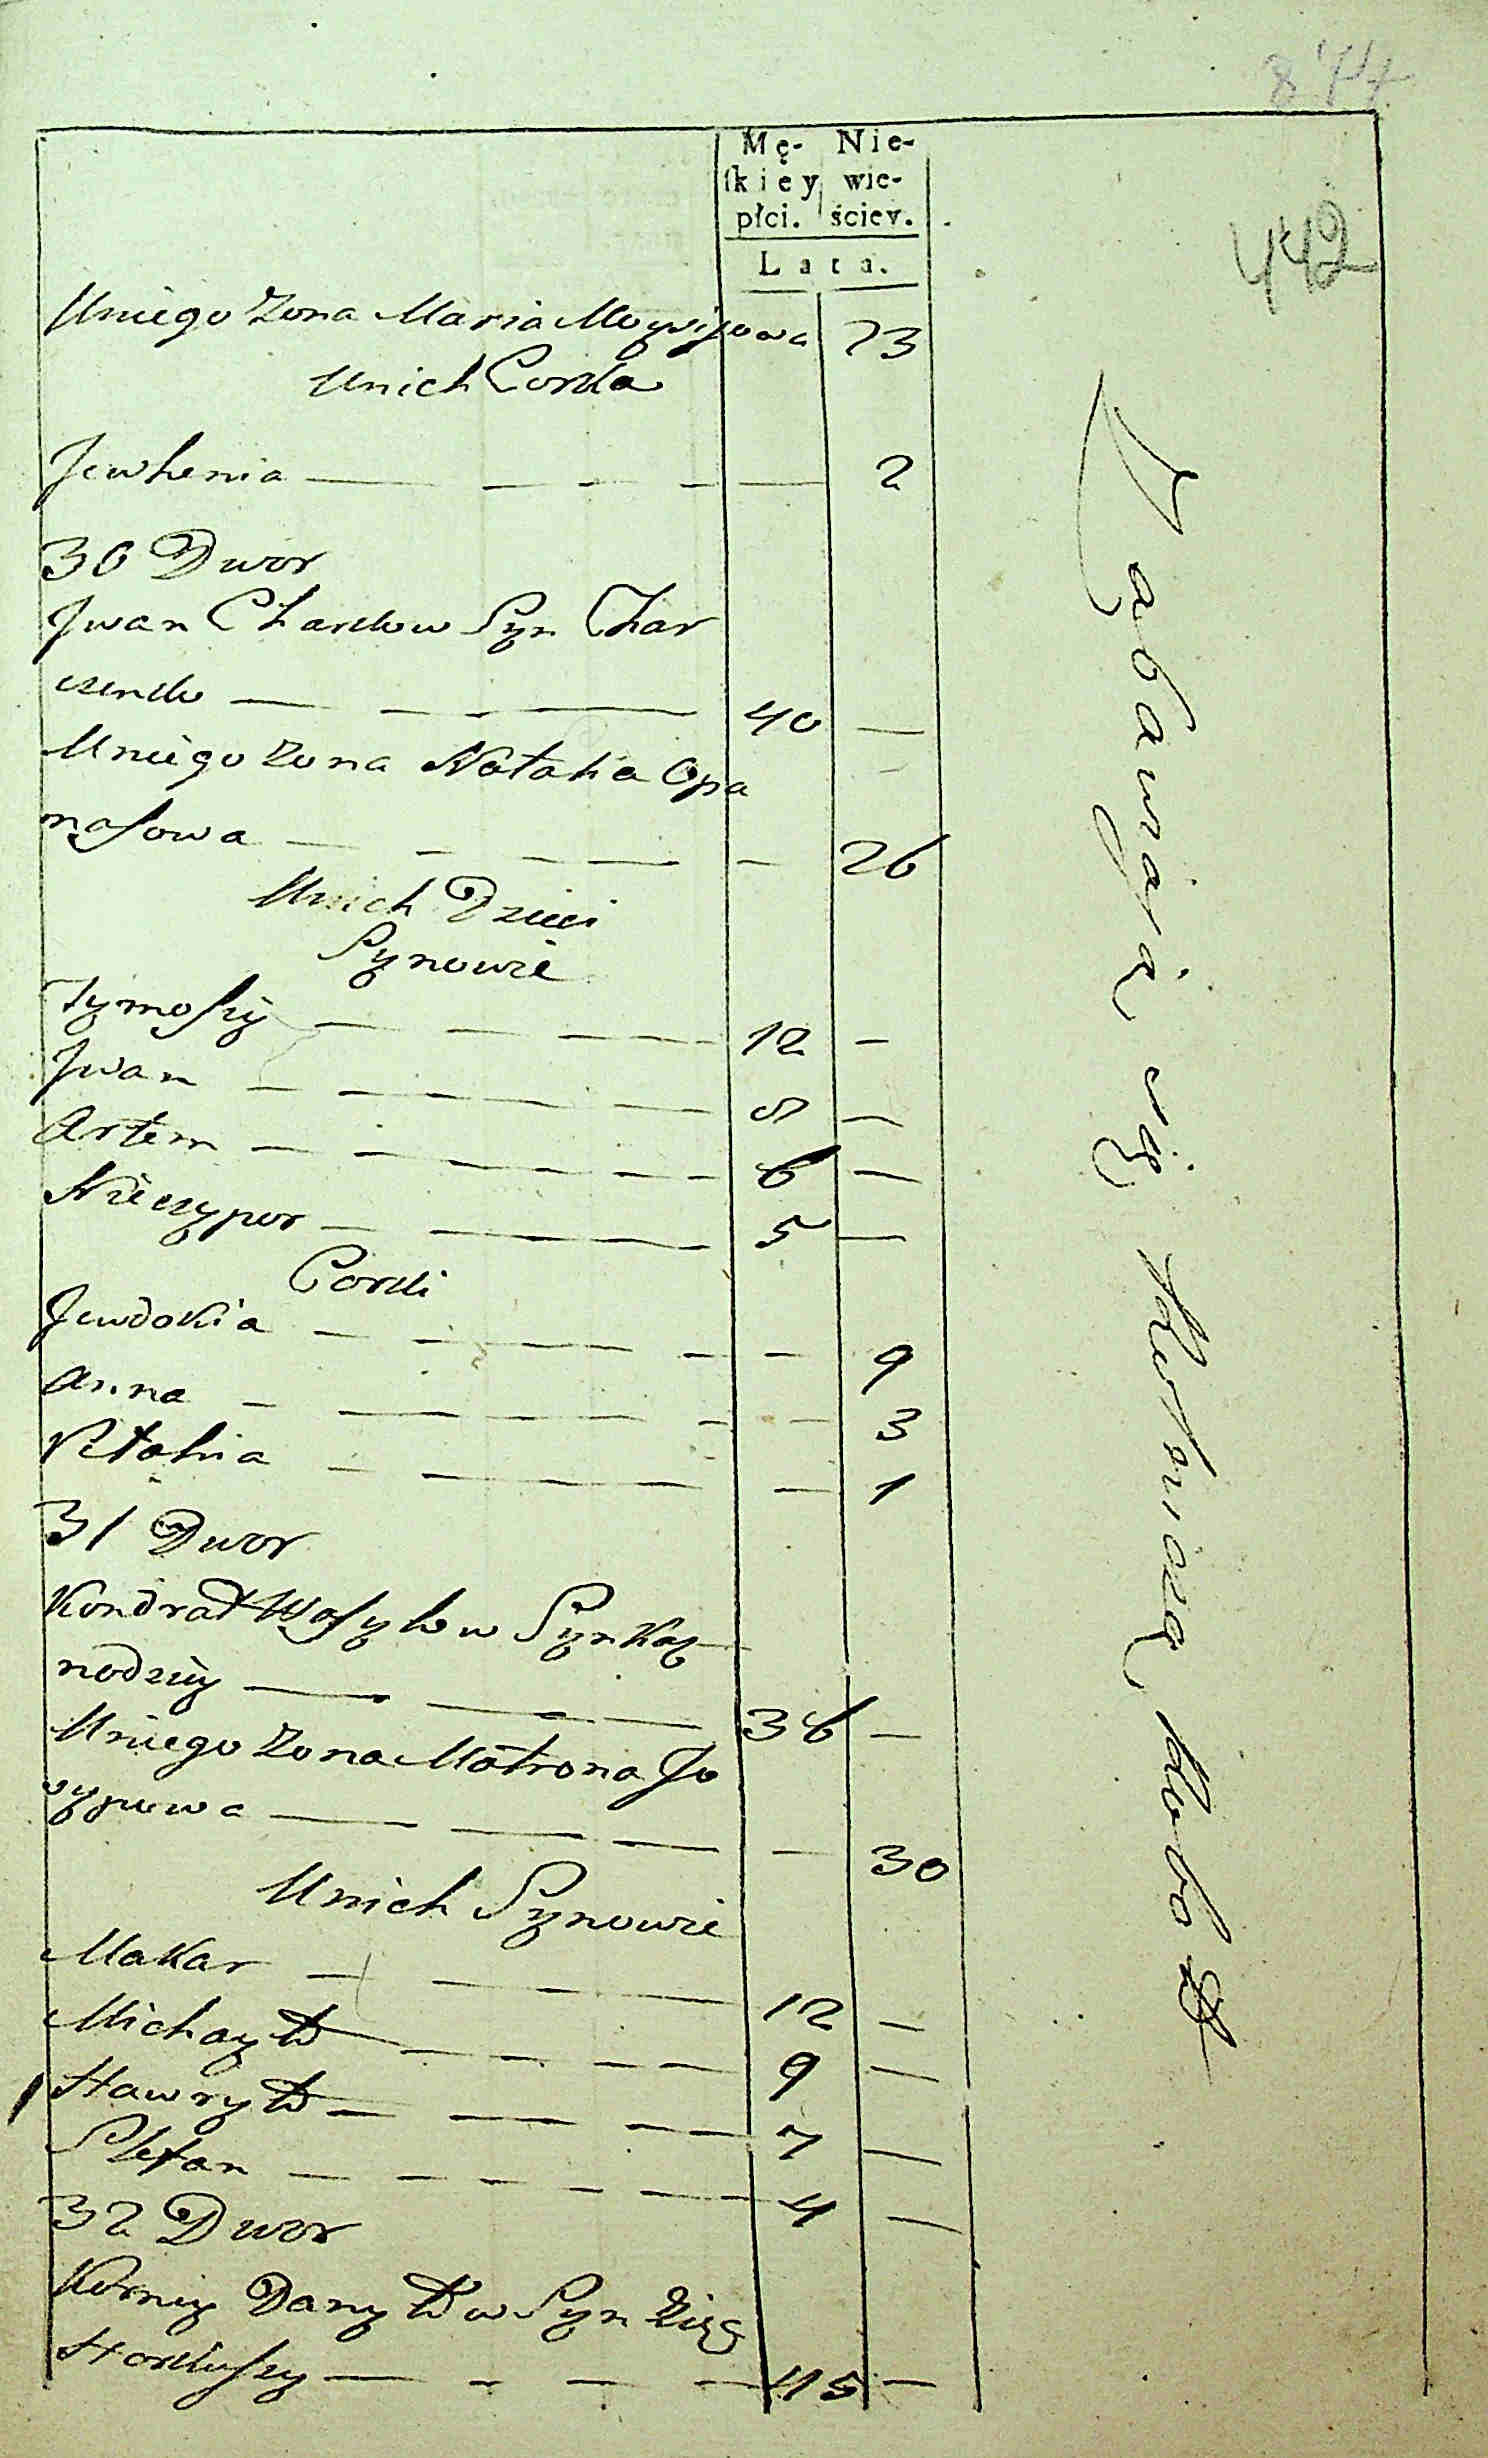 874
442
Mę- Nie-
ſkiey wie-
płci. ściey.
Lata.
Uniego Zona Maria Moysijowa 23
Unich Corka
Jewhenia — — — — — 2
30 Dwor
Jwan Charkow Syn Char
czenko — — — 40 —
Uniego Zona Natalia Opa
nasowa — — — — — 26
Unich Dzieci
Synowie
Tymoſzy — — — — 12 —
Jwan — — — — — 8 —
Artem — — — — — 6 —
Nieczypor — — — 5 —
Corki
Jewdokia — — — — — 9
Anna — — — — — 3
Natalia — — — — 1
31 Dwor
Kondrat Waſylow Syn
nodziy — — — — 36 —
Uniego Zona Matrona Jo
sypowa — — — — 30
Unich Synowie
Makar — — — 12 —
Michayło — — — — 9 —
Hawryło — — — — 7 —
Stefan — — — — — 4 —
32 Dwor
Korniy Danyłow Syn
— — — — 45 —
Zabawiaią się